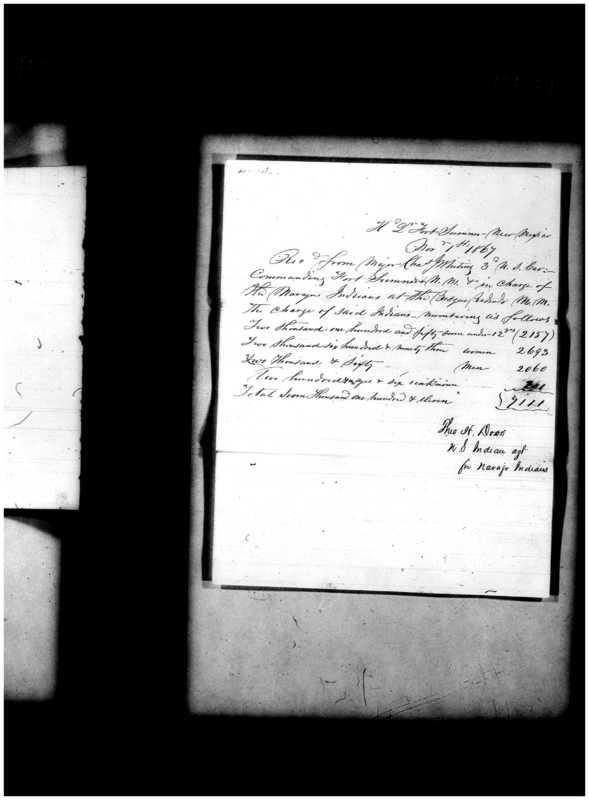 Hd Qrs Fort Sumner New Mexico
Nov 1st 1867
Recd from Major Chas J Whiting 3d U.S. Cav
Commanding Fort Sumner N.M. & in charge of
the Navajo Indians at the Bosque Redondo N.M.
the charge of said Indians numbering as follows
Two thousand one hundred and fifty seven under 12 yrs (2157)
Two thousand six hundred & ninety three women 2693
Two Thousand & Sixty Men 2060
Two hundred & one
Total Seven Thousand one hundred & eleven 7111
Theo H. Dodd
U S Indian agt
for Navajo Indians